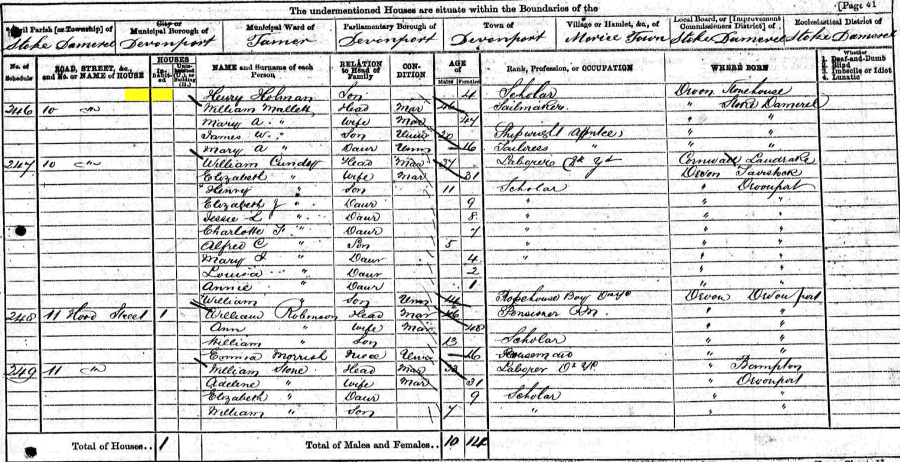 The undermentioned Houses are situate within the Boundaries of the
[Page 41
Civil Parish [or Township] of
City or Municipal Borough of
Municipal Ward of
Parliamentary Borough of
Town of
Village or Hamlet, &c., of
Local Board, or [Improvement Commissioners District] of
Ecclesiastical District of
Stoke Damerel Devonport Tamar Devonport Devonport Morice Town Stoke Damerel Stoke Damerel
No. of Schedule
ROAD, STREET, &c., and No. or NAME of HOUSE
HOUSES
Inhabited
Uninhabited (U.), or Building (B.)
NAME and Surname of each Person
RELATION to Head of Family
CONDITION
AGE of
Males Females
Rank, Profession, or OCCUPATION
WHERE BORN
Whether
Deaf-and-Dumb
Blind
Imbecile or Idiot
Lunatic
Henry Holman Son 4 Scholar Devon Stonehouse
246 10 William Mallett Head Mar 46 Sailmaker " Stoke Damerel
Mary A. " Wife Mar 47 " "
James W. " Son Unm 20 Shipwright Apntce " "
Mary A " Daur Unm 16 Tailress " " "
247 10 William Cundy Head Mar 37 Laborer Dk Yd Cornwall Landrake
Elizabeth " Wife Mar 31 Devon Tavistock
Henry " Son 11 Scholar " Devonport
Elizabeth J " Daur 9 " " "
Jessie L " Daur 8 " " "
Charlotte F. " Daur 7 " " "
Alfred C " Son 5 " "
Mary J " Daur 4 " "
Louisa " Daur 2 " "
Annie " Daur 1 " "
William " Son Unm 14 Ropehouse Boy Devon Devonport
248 11 Hood Street 1 William Robinson Head Mar 46 Pensioner " "
Ann " Wife Mar 48 " "
William " Son 13 Scholar " "
Emma Morrish Niece Unm 16 " "
249 11 William Stone Head Mar 33 Laborer " Bampton
Adeline " Wife Mar 31 " Devonport
Elizabeth " Daur 9 Scholar " "
William " Son 7 " " "
Total of Houses.. 1 Total of Males and Females.. 10 14